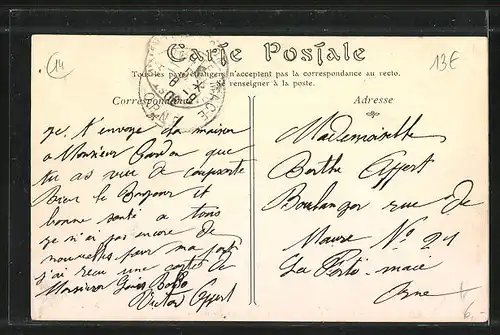 14
13€
Carte Postale
Tous les pays étrangers n'acceptent pas la correspondance au recto.
Se renseigner à la poste.
Correspondance
Adresse
je t'envoye la maison
a Monsieur que
tu as vue de
Bien le Bonjour et
bonne santé a tous
je n'ai pas encore de
nouvelles pour ma part
j'ai recu une carte de
Monsieur
Victor Appert
Mademoiselle
Berthe Appert
Boulanger rue de
No 21
La Ferté-macé
Orne
6,-